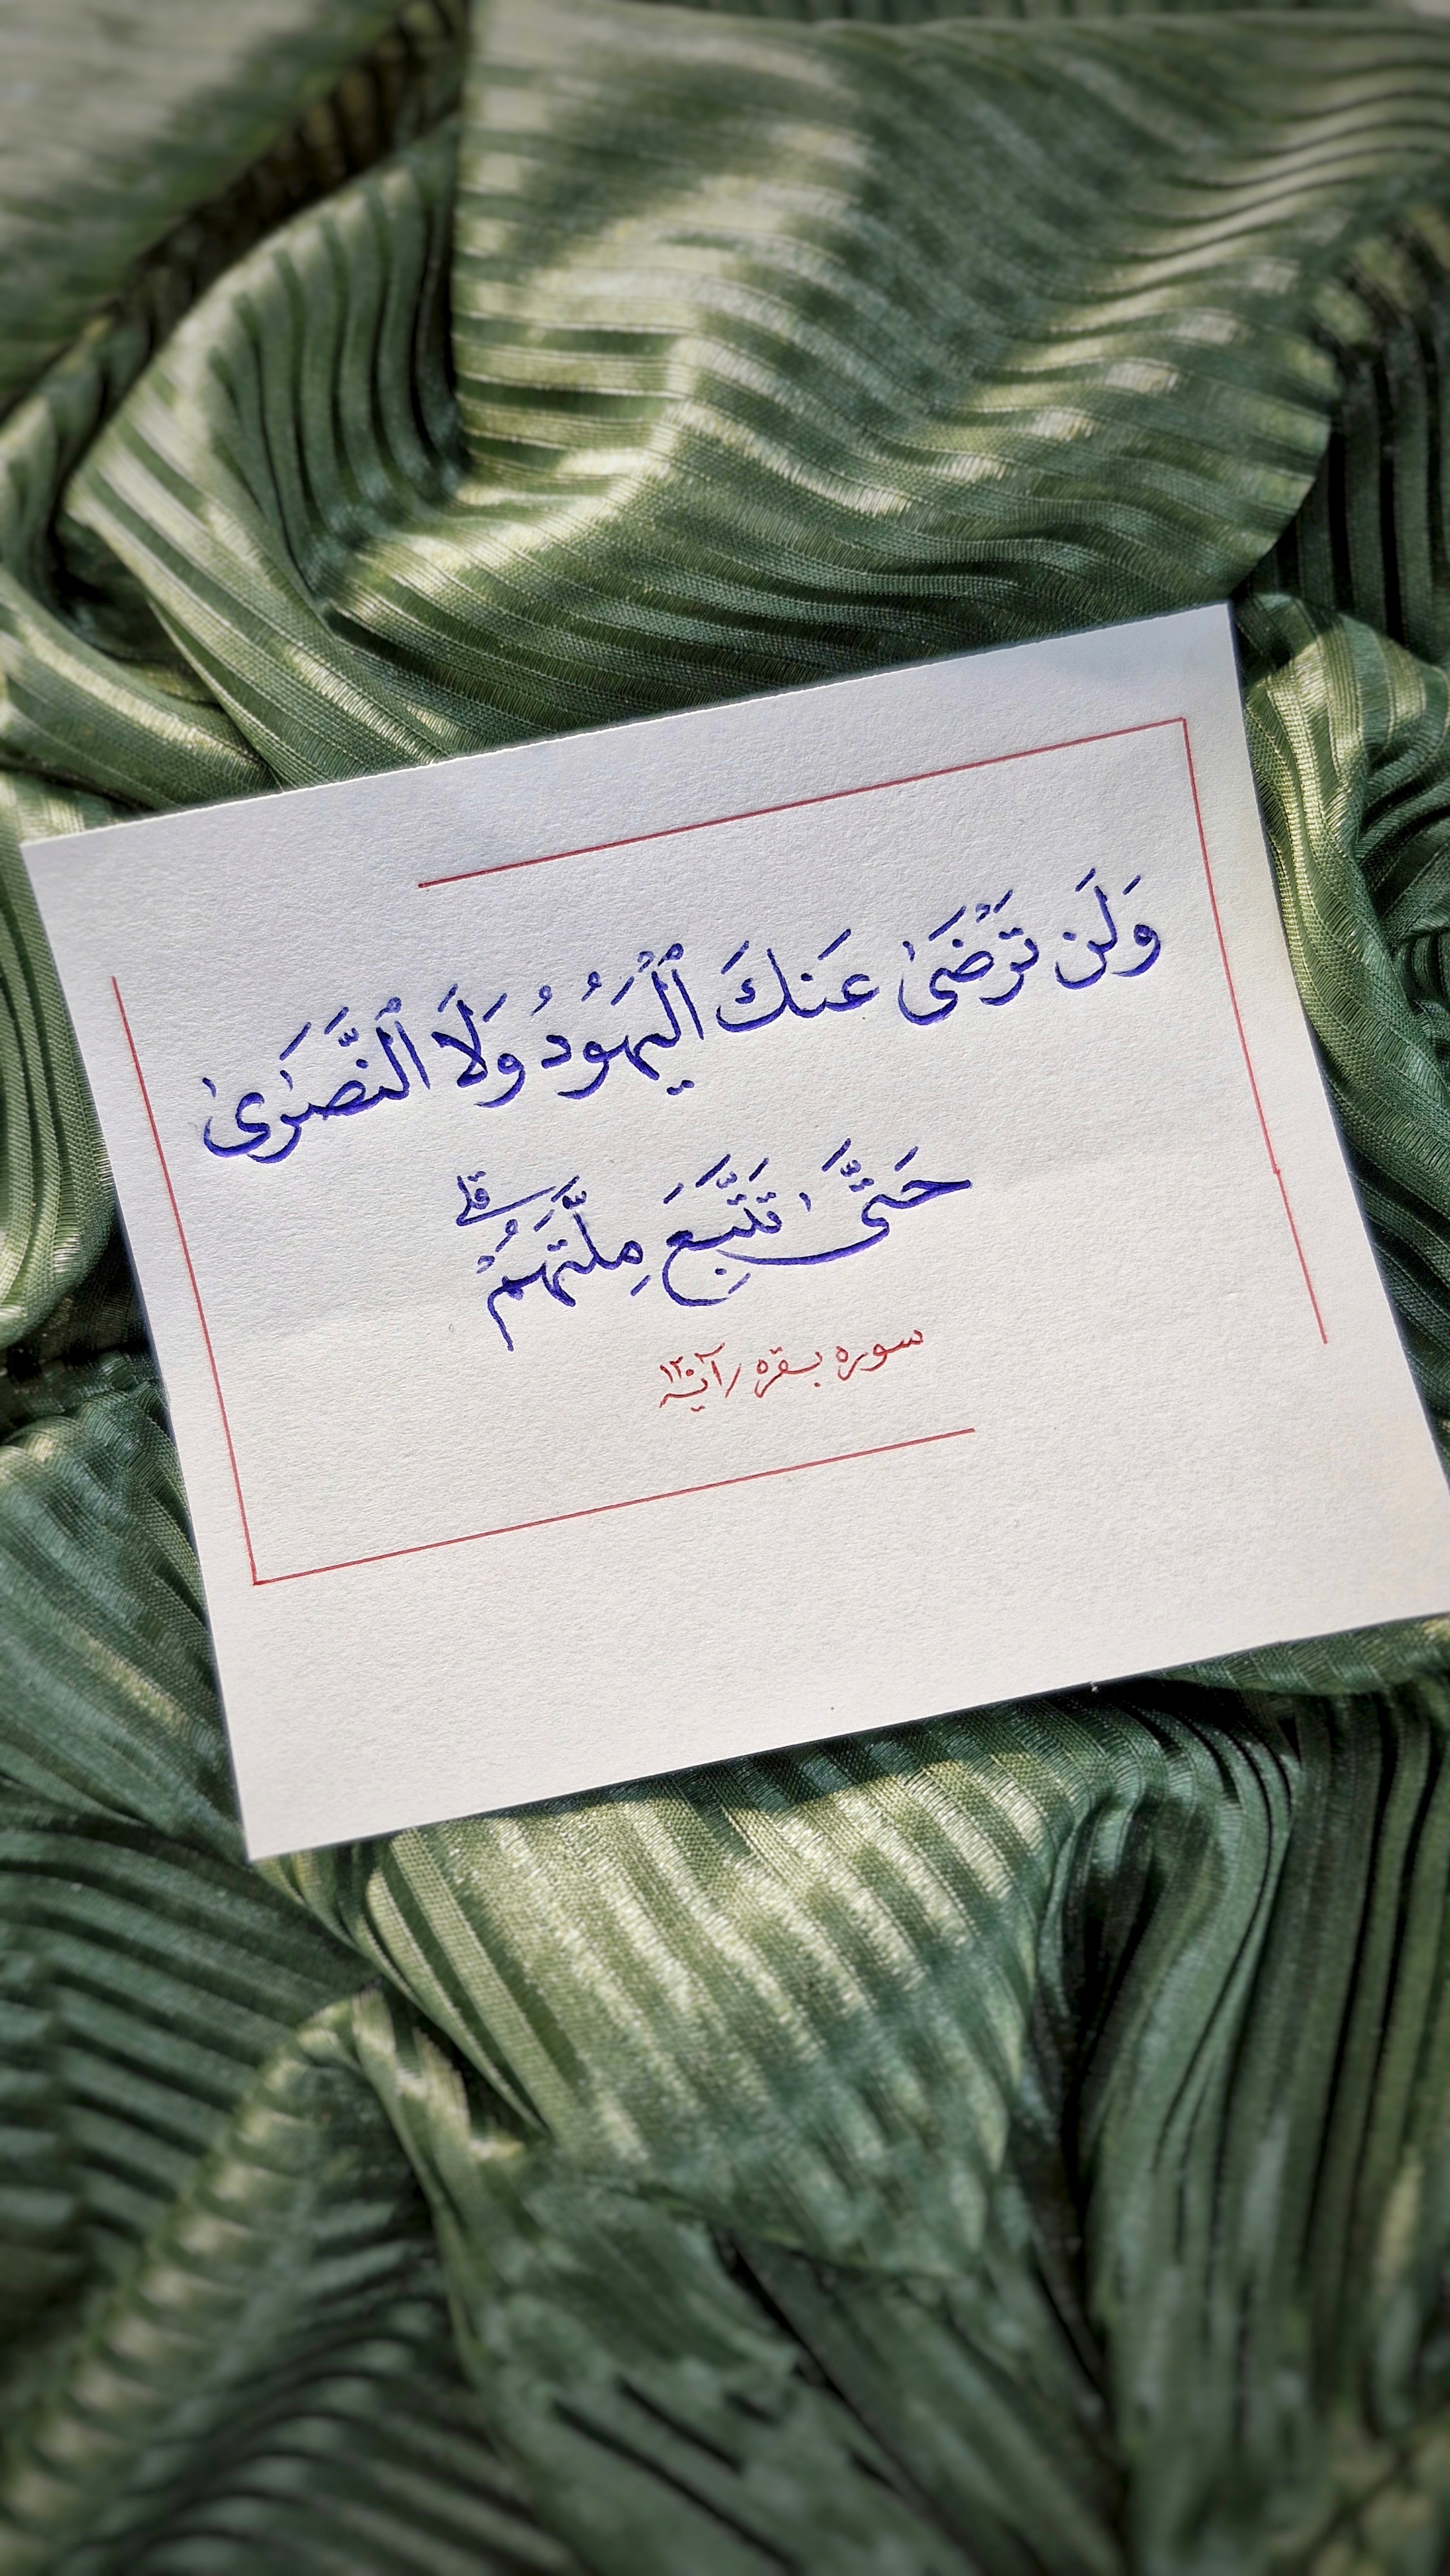 وَلَن تَرْضَىٰ عَنكَ ٱلْيَهُودُ وَلَا ٱلنَّصَٰرَىٰ
حَتَّىٰ تَتَّبِعَ مِلَّتَهُمْ ۗ
سوره بقره / آیه ۱۲۰